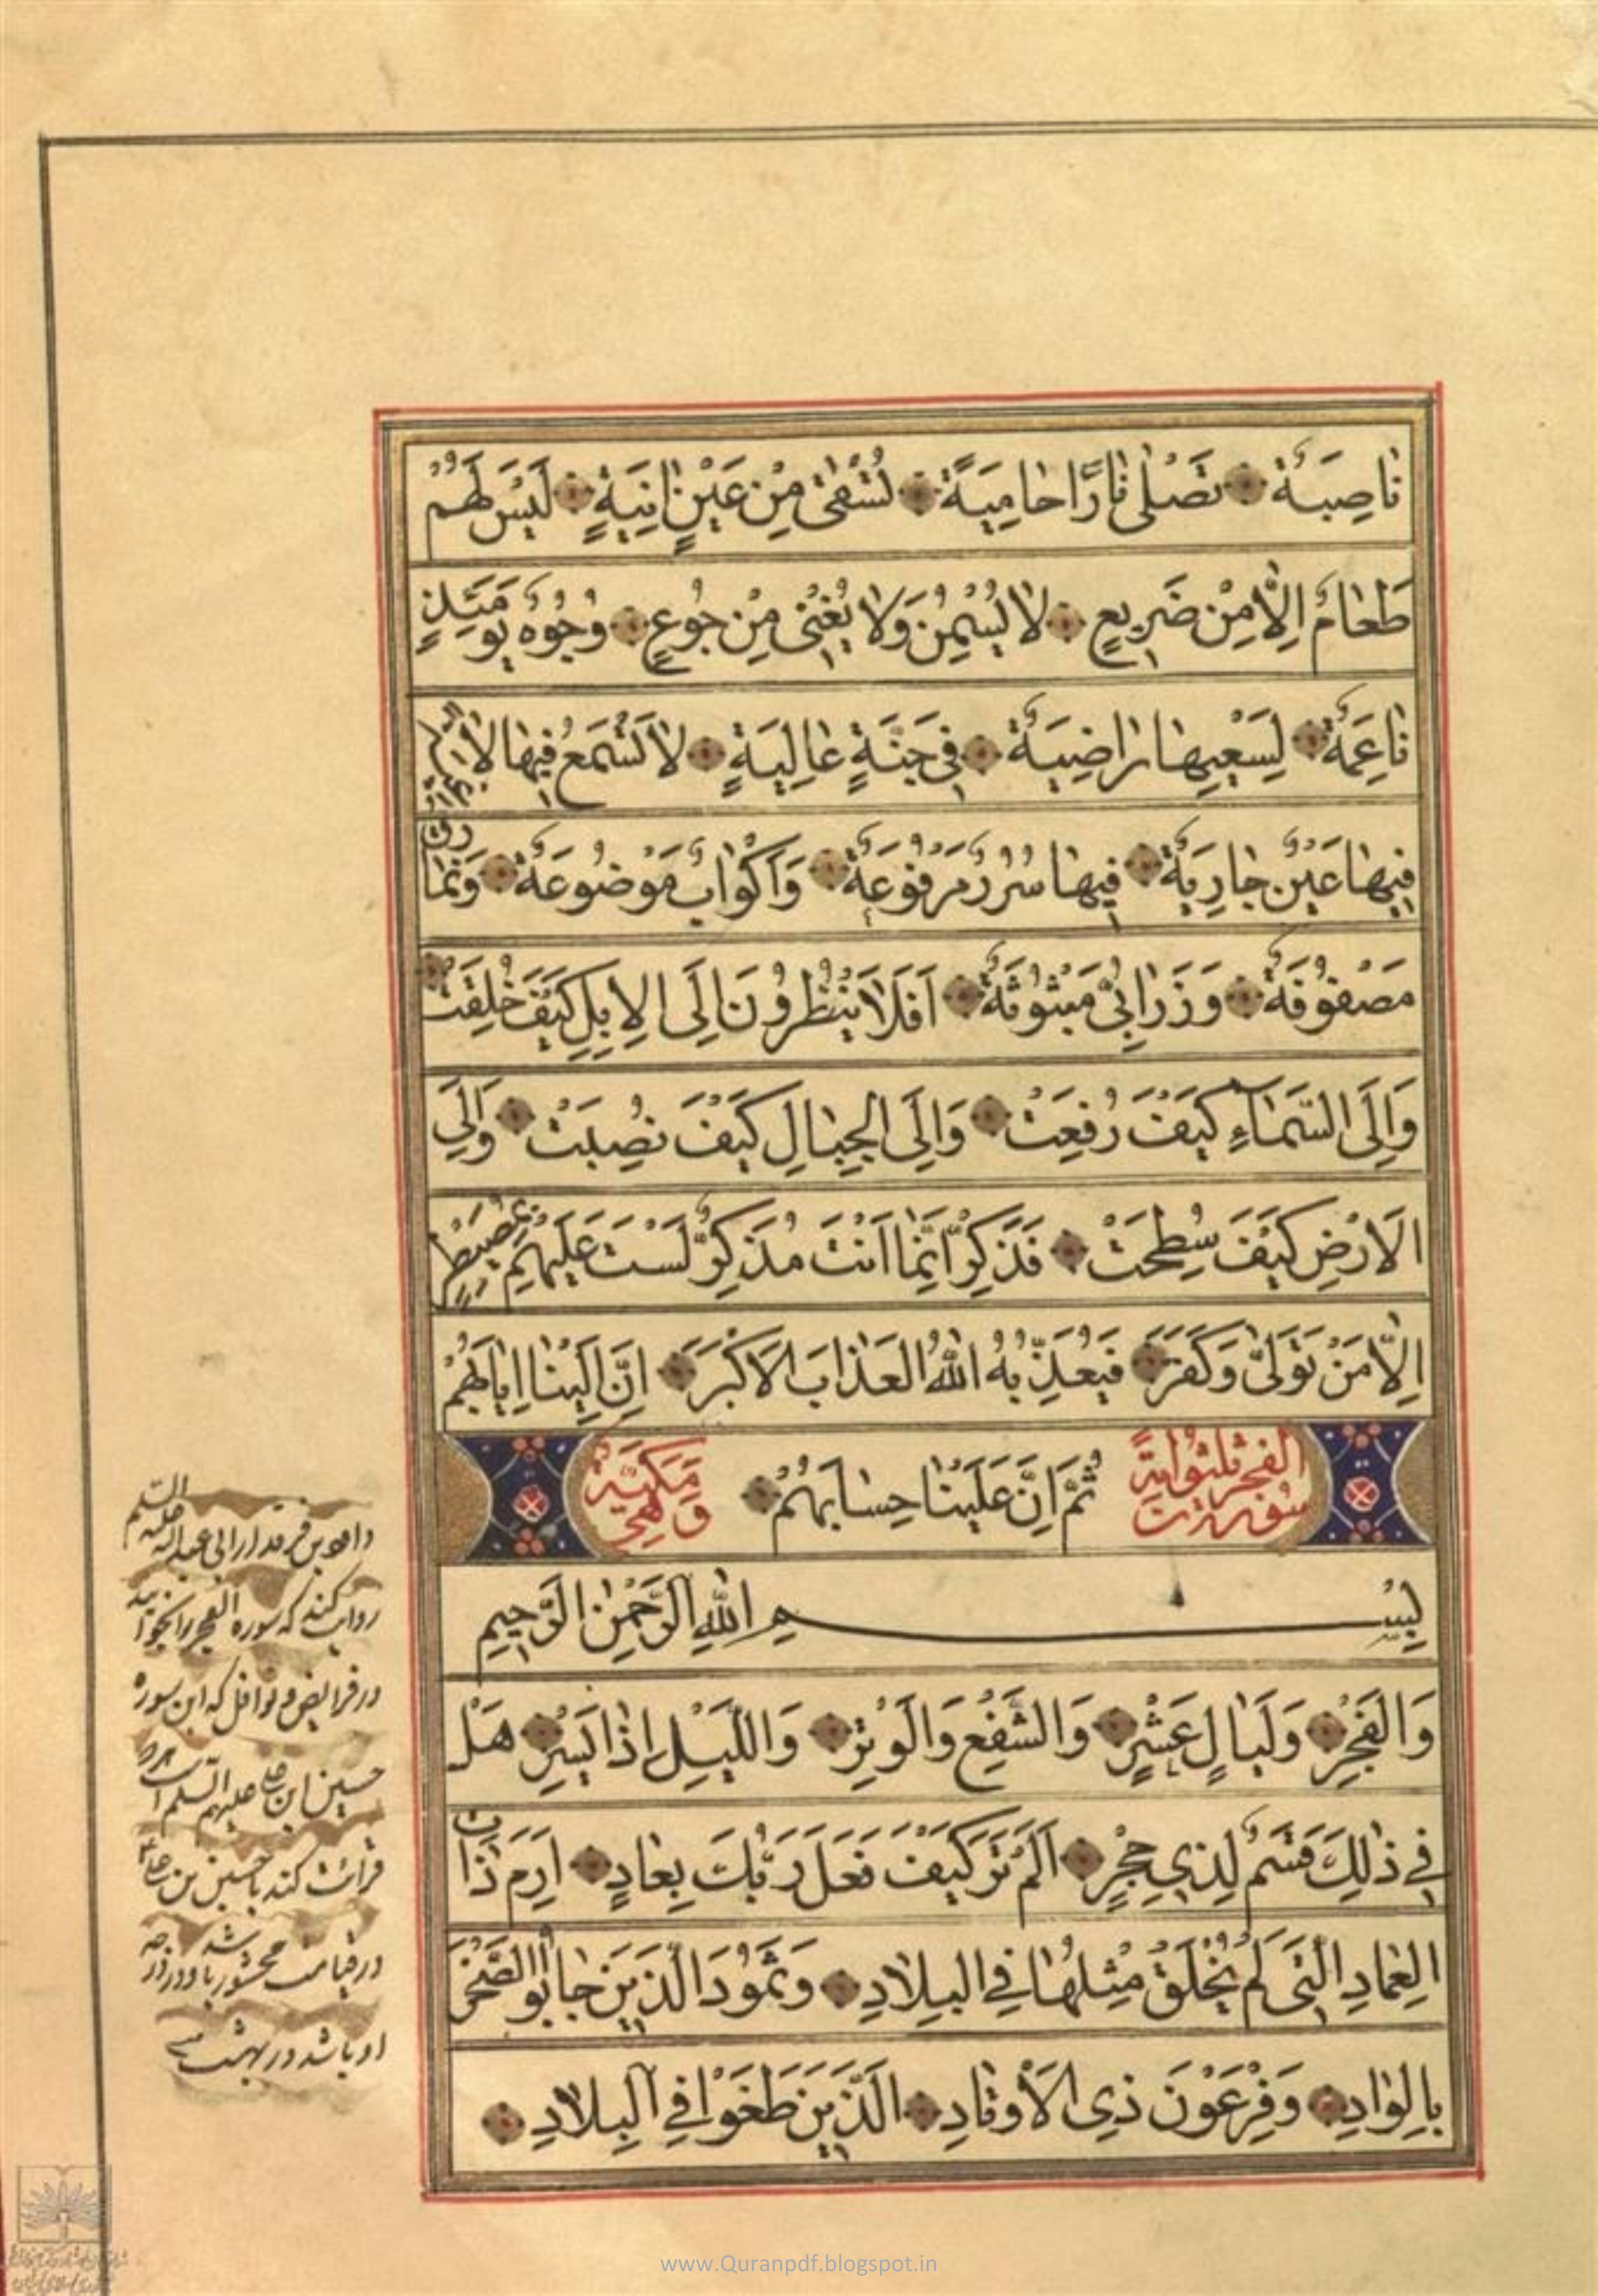 نَاصِبَةٌ تَصْلٰى نَارًا حَامِيَةً تُسْقٰى مِنْ عَيْنٍ اٰنِيَةٍ لَيْسَ لَهُمْ
طَعَامٌ اِلَّا مِنْ ضَرِيعٍ لَا يُسْمِنُ وَلَا يُغْنِى مِنْ جُوعٍ وُجُوهٌ يَوْمَئِذٍ
نَاعِمَةٌ لِسَعْيِهَا رَاضِيَةٌ فِى جَنَّةٍ عَالِيَةٍ لَا تَسْمَعُ فِيهَا لَاغِيَةً
فِيهَا عَيْنٌ جَارِيَةٌ فِيهَا سُرُرٌ مَرْفُوعَةٌ وَاَكْوَابٌ مَوْضُوعَةٌ وَنَمَارِقُ
مَصْفُوفَةٌ وَزَرَابِىُّ مَبْثُوثَةٌ اَفَلَا يَنْظُرُونَ اِلَى الْاِبِلِ كَيْفَ خُلِقَتْ
وَاِلَى السَّمَاءِ كَيْفَ رُفِعَتْ وَاِلَى الْجِبَالِ كَيْفَ نُصِبَتْ وَاِلَى
الْاَرْضِ كَيْفَ سُطِحَتْ فَذَكِّرْ اِنَّمَا اَنْتَ مُذَكِّرٌ لَسْتَ عَلَيْهِمْ بِمُصَيْطِرٍ
اِلَّا مَنْ تَوَلّٰى وَكَفَرَ فَيُعَذِّبُهُ اللّٰهُ الْعَذَابَ الْاَكْبَرَ اِنَّ اِلَيْنَا اِيَابَهُمْ
سورة الفجر ثلثون اية ثُمَّ اِنَّ عَلَيْنَا حِسَابَهُمْ وهى مكية
بِسْمِ اللّٰهِ الرَّحْمٰنِ الرَّحِيمِ
وَالْفَجْرِ وَلَيَالٍ عَشْرٍ وَالشَّفْعِ وَالْوَتْرِ وَاللَّيْلِ اِذَا يَسْرِ هَلْ
فِى ذٰلِكَ قَسَمٌ لِذِى حِجْرٍ اَلَمْ تَرَ كَيْفَ فَعَلَ رَبُّكَ بِعَادٍ اِرَمَ ذَاتِ
الْعِمَادِ الَّتِى لَمْ يُخْلَقْ مِثْلُهَا فِى الْبِلَادِ وَثَمُودَ الَّذِينَ جَابُوا الصَّخْرَ
بِالْوَادِ وَفِرْعَوْنَ ذِى الْاَوْتَادِ الَّذِينَ طَغَوْا فِى الْبِلَادِ
داود بن فرقد از ابى عبدالله عليه السلم
روايت كند كه سوره الفجر را بخوانيد
در فرايض و نوافل كه اين سوره
حسين ابن على عليهم السلم است هر كه
قرائت كند با حسين بن على
در قيامت محشور باشد و در درجه
او باشد در بهشت
www.Quranpdf.blogspot.in